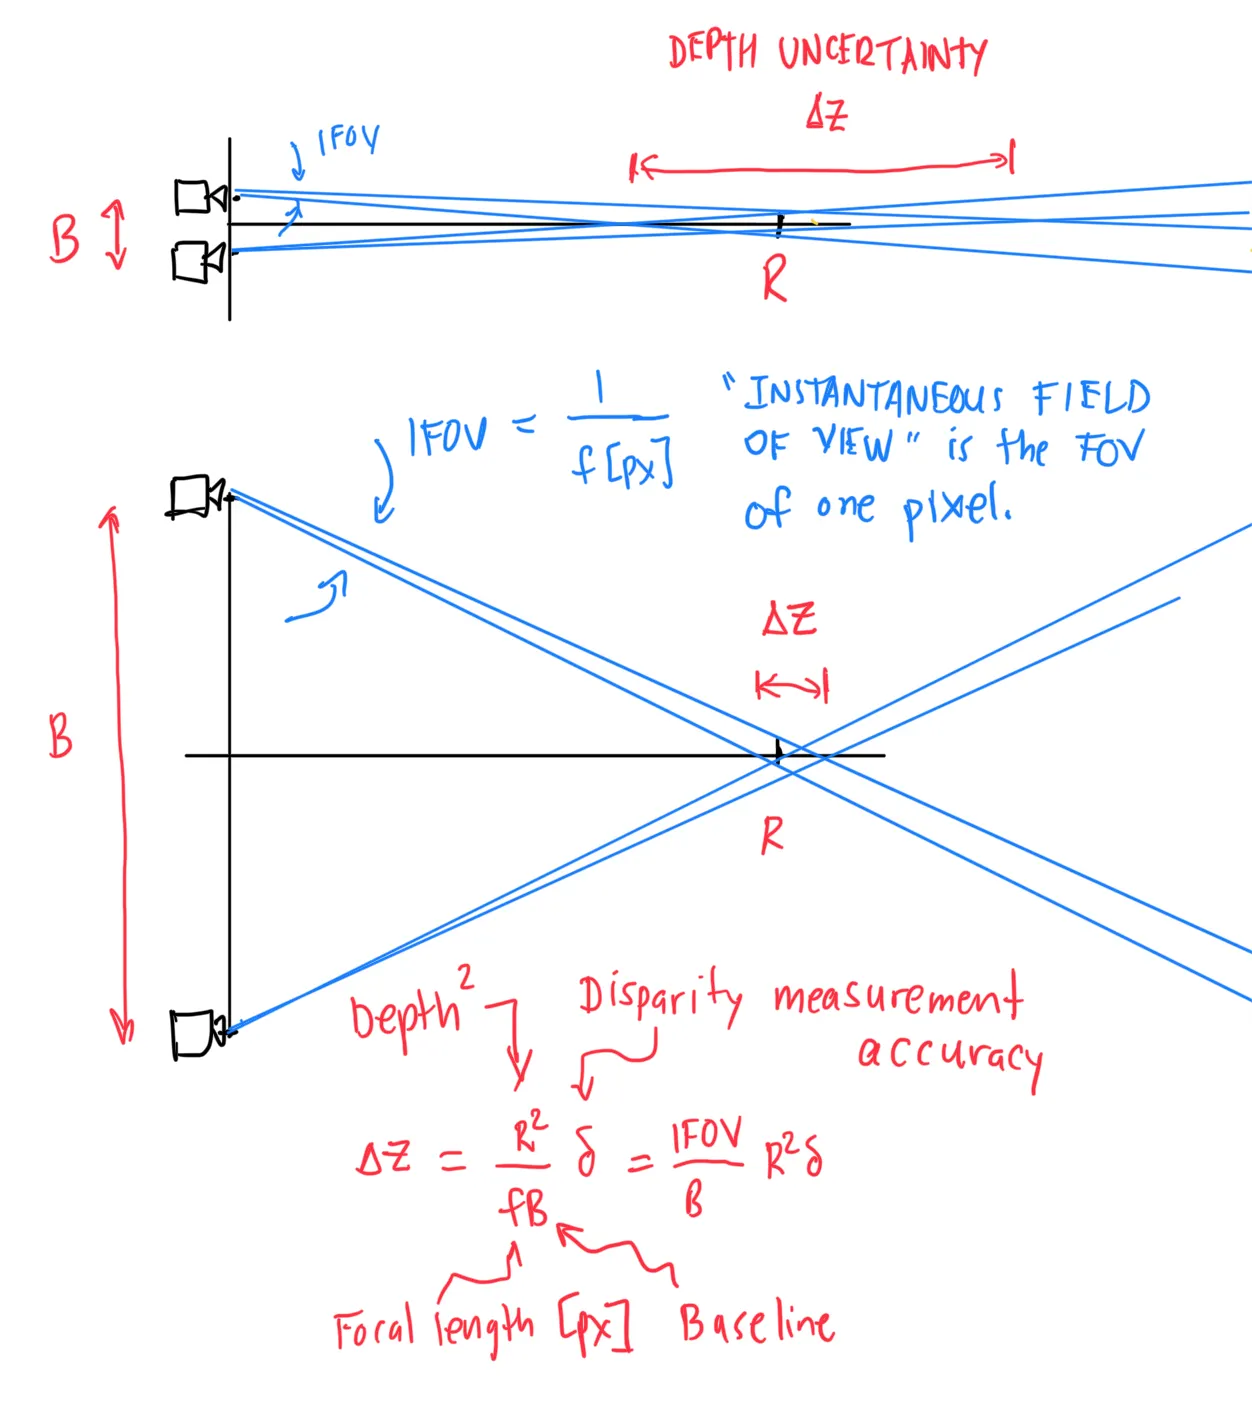 DEPTH UNCERTAINTY
ΔZ
IFOV
B
R
IFOV = 1 / f [px]
"INSTANTANEOUS FIELD
OF VIEW" is the FOV
of one pixel.
ΔZ
B
R
Depth²
Disparity measurement
accuracy
ΔZ = R² / fB δ = IFOV / B R²δ
Focal length [px]
Baseline